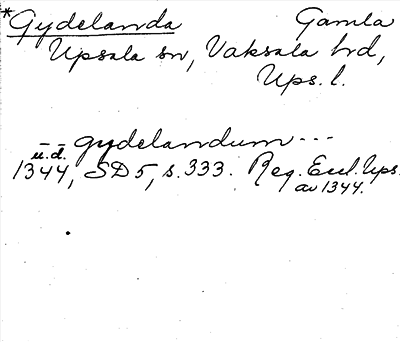 *Gydelanda Gamla
Upsala sn, Vaksala hd,
Ups. l.
u.d. gydelandum ---
1344, SD 5, s. 333. Reg. Eccl. Ups.
av 1344.